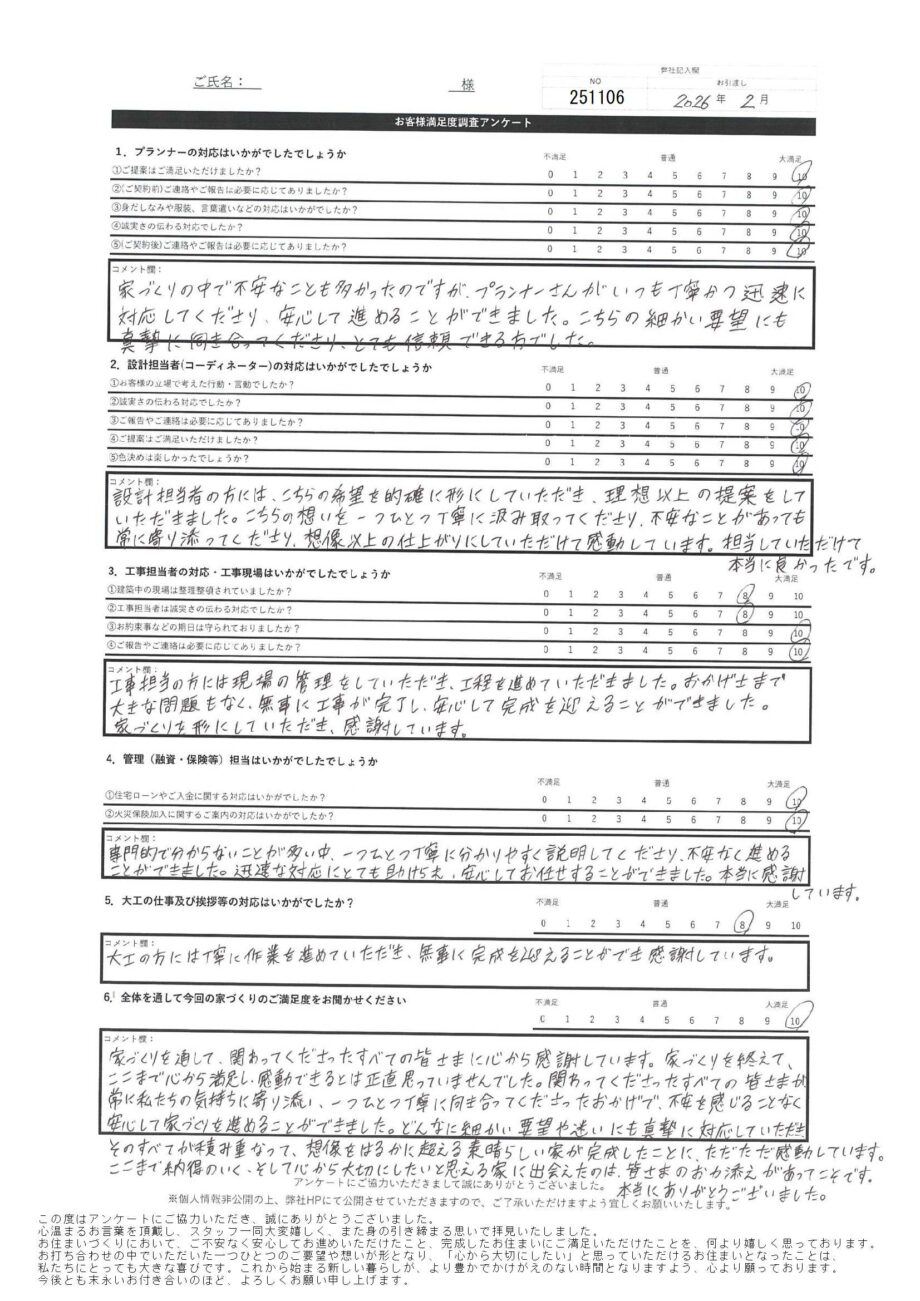 弊社記入欄
ご氏名：　　様
NO　お引渡し
251106　2026年 2月
お客様満足度調査アンケート
1．プランナーの対応はいかがでしたでしょうか　不満足　普通　大満足
①ご提案はご満足いただけましたか？　0 1 2 3 4 5 6 7 8 9 10
②(ご契約前)ご連絡やご報告は必要に応じてありましたか？　0 1 2 3 4 5 6 7 8 9 10
③身だしなみや服装、言葉遣いなどの対応はいかがでしたか？　0 1 2 3 4 5 6 7 8 9 10
④誠実さの伝わる対応でしたか？　0 1 2 3 4 5 6 7 8 9 10
⑤(ご契約後)ご連絡やご報告は必要に応じてありましたか？　0 1 2 3 4 5 6 7 8 9 10
コメント欄：
家づくりの中で不安なことも多かったのですが、プランナーさんがいつも丁寧かつ迅速に
対応してくださり、安心して進めることができました。こちらの細かい要望にも
真摯に向き合ってくださり、とても信頼できる方でした。
2．設計担当者(コーディネーター)の対応はいかがでしたでしょうか　不満足　普通　大満足
①お客様の立場で考えた行動・言動でしたか？　0 1 2 3 4 5 6 7 8 9 10
②誠実さの伝わる対応でしたか？　0 1 2 3 4 5 6 7 8 9 10
③ご報告やご連絡は必要に応じてありましたか？　0 1 2 3 4 5 6 7 8 9 10
④ご提案はご満足いただけましたか？　0 1 2 3 4 5 6 7 8 9 10
⑤色決めは楽しかったでしょうか？　0 1 2 3 4 5 6 7 8 9 10
コメント欄：
設計担当者の方には、こちらの希望を的確に形にしていただき、理想以上の提案をして
いただきました。こちらの想いを一つひとつ丁寧に汲み取ってくださり、不安なことがあっても
常に寄り添ってくださり、想像以上の仕上がりにしていただけて感動しています。担当していただけて
本当に良かったです。
3．工事担当者の対応・工事現場はいかがでしたでしょうか　不満足　普通　大満足
①建築中の現場は整理整頓されていましたか？　0 1 2 3 4 5 6 7 8 9 10
②工事担当者は誠実さの伝わる対応でしたか？　0 1 2 3 4 5 6 7 8 9 10
③お約束事などの期日は守られておりましたか？　0 1 2 3 4 5 6 7 8 9 10
④ご報告やご連絡は必要に応じてありましたか？　0 1 2 3 4 5 6 7 8 9 10
コメント欄：
工事担当の方には現場の管理をしていただき、工程を進めていただきました。おかげさまで
大きな問題もなく、無事に工事が完了し、安心して完成を迎えることができました。
家づくりを形にしていただき、感謝しています。
4．管理（融資・保険等）担当はいかがでしたでしょうか
不満足　普通　大満足
①住宅ローンやご入金に関する対応はいかがでしたか？　0 1 2 3 4 5 6 7 8 9 10
②火災保険加入に関するご案内の対応はいかがでしたか？　0 1 2 3 4 5 6 7 8 9 10
コメント欄：
専門的で分からないことが多い中、一つひとつ丁寧に分かりやすく説明してくださり、不安なく進める
ことができました。迅速な対応にとても助けられ、安心してお任せすることができました。本当に感謝
しています。
5．大工の仕事及び挨拶等の対応はいかがでしたか？　不満足　普通　大満足
0 1 2 3 4 5 6 7 8 9 10
コメント欄：
大工の方には丁寧に作業を進めていただき、無事に完成を迎えることができ感謝しています。
6．全体を通して今回の家づくりのご満足度をお聞かせください　不満足　普通　大満足
0 1 2 3 4 5 6 7 8 9 10
コメント欄：
家づくりを通して、関わってくださったすべての皆さまに心から感謝しています。家づくりを終えて、
ここまで心から満足し、感動できるとは正直思っていませんでした。関わってくださったすべての皆さまが
常に私たちの気持ちに寄り添い、一つひとつ丁寧に向き合ってくださったおかげで、不安を感じることなく
安心して家づくりを進めることができました。どんなに細かい要望や迷いにも真摯に対応していただき
そのすべてが積み重なって、想像をはるかに超える素晴らしい家が完成したことに、ただただ感動しています。
ここまで納得のいく、そして心から大切にしたいと思える家に出会えたのは、皆さまのお力添えがあってこそです。
本当にありがとうございました。
アンケートにご協力いただきまして誠にありがとうございました。
※個人情報非公開の上、弊社HPにて公開させていただきますので、ご了承いただけますよう宜しくお願いいたします。
この度はアンケートにご協力いただき、誠にありがとうございました。
心温まるお言葉を頂戴し、スタッフ一同大変嬉しく、また身の引き締まる思いで拝見いたしました。
お住まいづくりにおいて、ご不安なく安心してお進めいただけたこと、完成したお住まいにご満足いただけたことを、何より嬉しく思っております。
お打ち合わせの中でいただいた一つひとつのご要望や想いが形となり、「心から大切にしたい」と思っていただけるお住まいとなったことは、
私たちにとっても大きな喜びです。これから始まる新しい暮らしが、より豊かでかけがえのない時間となりますよう、心より願っております。
今後とも末永いお付き合いのほど、よろしくお願い申し上げます。